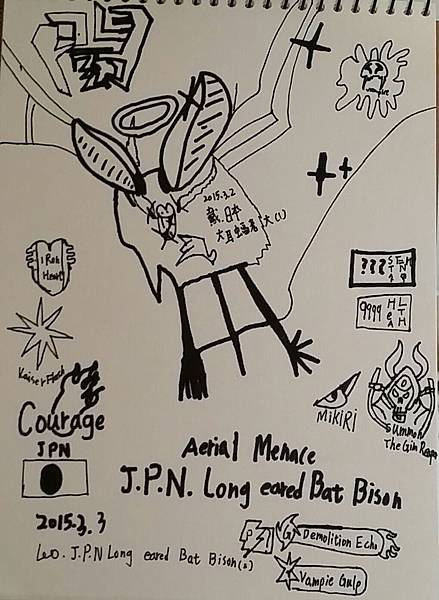 2015.3.2
戴.日本
大耳蝠
大(1)
I Ron
Heart
???
STRENGTH
9999
HeALTH
Kaiser Flash
Courage
JPN
MiKiRi
Summon
The Grim Reaper
Aerial Menace
J.P.N. Long eared Bat Bison
2015.3.3
Leo. J.P.N Long eared Bat Bison(2)
Demolition Echo
Vampie Gulp